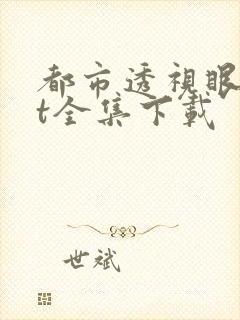 都市透视眼
t全集下载
世斌